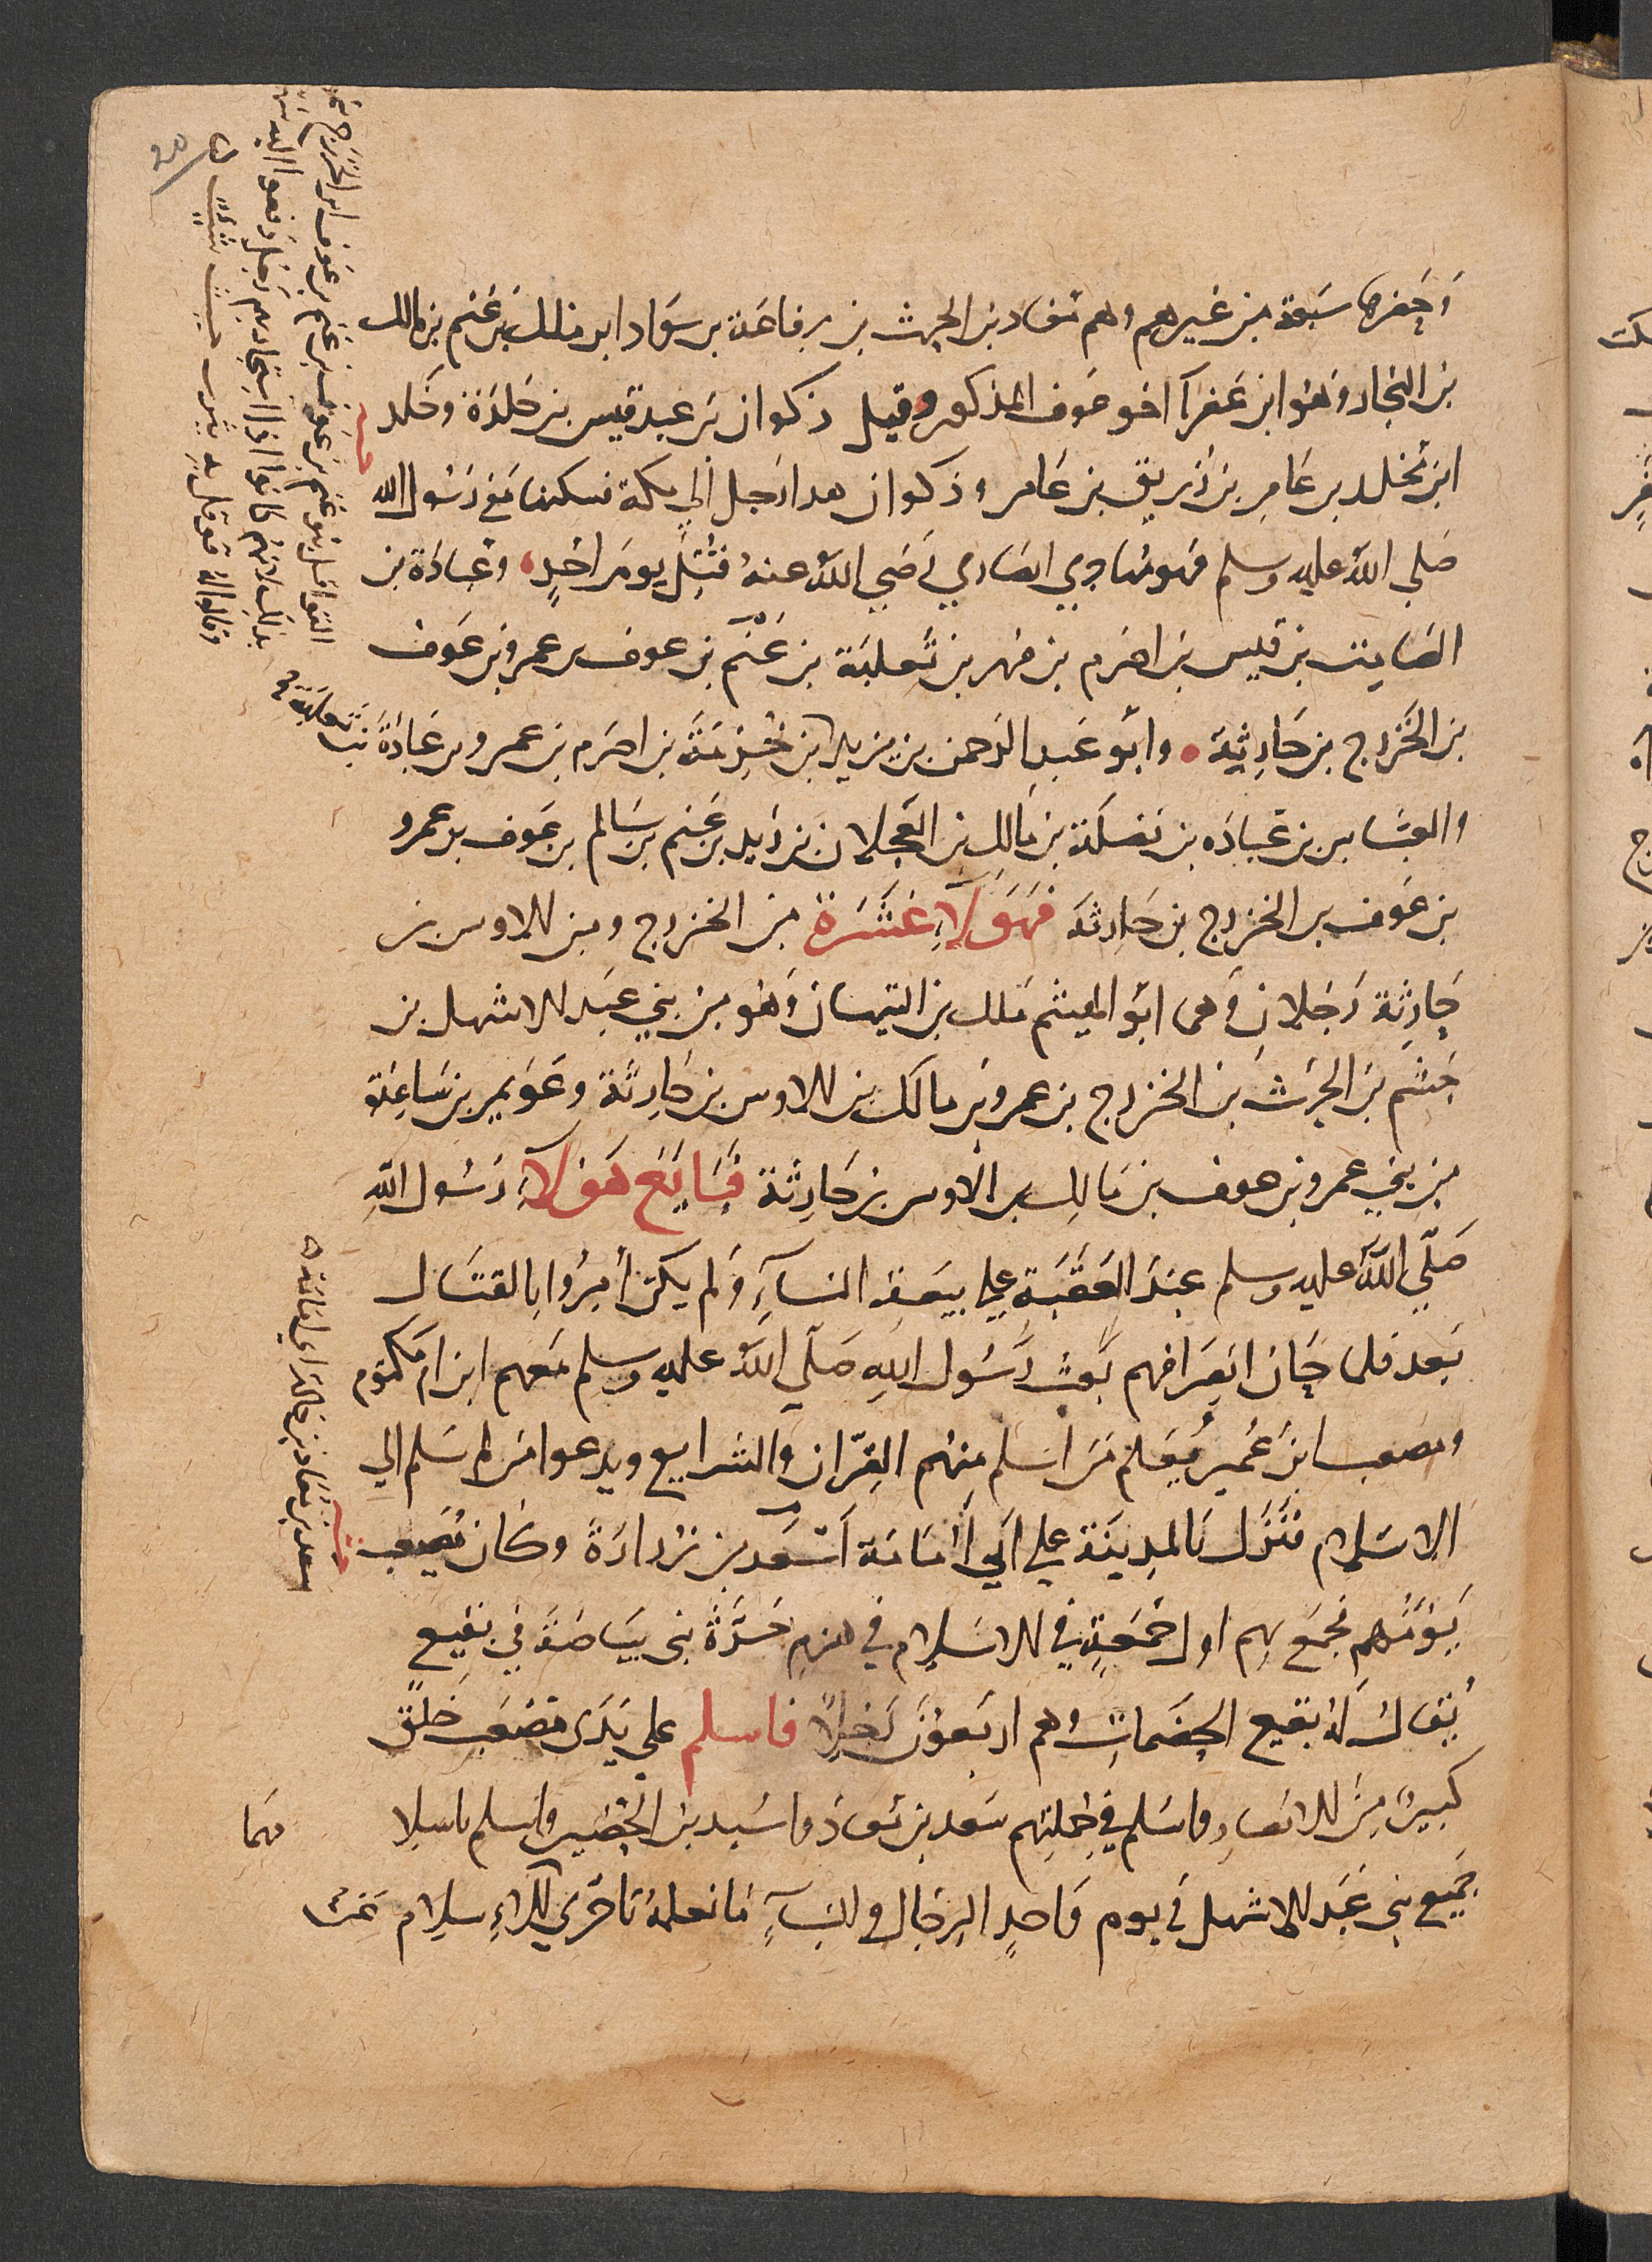 وحضرها سبعة من غيرهم وهم معاذ بن الحرث بن رفاعة بن سواد ابن مالك بن غنم بن مالك
بن النجار وهو ابن عفرآ اخو عوف المذكور وقيل ذكوان بن عبد قيس بن خلدة وخلد
ابن مخلد بن عامر بن زريق بن عامر وذكوان هدا رحل الي مكة فسكنها مع رسول الله
صلي الله عليه وسلم فهو مهاجري انصاري رضي الله عنه قتل يوم احد وعبادة بن
الصامت بن قيس بن اصرم بن فهر بن ثعلبة بن غنم بن عوف بن عمرو بن عوف
بن الخزرج بن حارثة وابو عبد الرحمن بن يزيد ابن خزمة بن اصرم بن عمرو بن عبادة بن ثعلبة
والعباس بن عباده بن نضلة بن مالك بن العجلان بن زيد بن غنم بن سالم بن عوف بن عمرو
بن عوف بن الخزرج بن حارثة فهولآ عشرة من الخزرج ومن الاوس بن
حارثة رجلان وهما ابو الهيثم ملك بن التيهان وهو من بني عبد الاشهل بن
جشم بن الحرث بن الخزرج بن عمرو بن مالك بن الاوس بن حارثة وعويمر بن ساعدة
من بني عمرو بن عوف بن مالك بن الاوس بن حارثة فبايع هولآ رسول الله
صلي الله عليه وسلم عند العقبة علي بيعة النسآء ولم يكن أمروا بالقتال
بعد فلما حان انصرافهم بعث رسول الله صلي الله عليه وسلم معهم ابن ام مكتوم
ومصعب ابن عمير يعلم من اسلم منهم القرآن والشرايع ويدعوا من لم يسلم الي
الاسلام فنزل بالمدينة علي ابي أمامة اسعد بن زرارة وكان مصعب
يؤمهم فجمع بهم اول جمعة في الاسلام في هزم حرة بني بياضة في نقيع
يقال له بقيع الخضمات وهم اربعون رجلا فاسلم علي يدى مصعب خلق
كثير من الانصار واسلم في جملتهم سعد بن معاذ واسيد بن الحضير واسلم باسلا مهما
جميع بني عبد الاشهل في يوم واحد الرجال والنسآء ما نعلم تاخر في الاسلام عنهم
القواقل بنو غنم بن عوف بن غنم بن عوف ابن الخزرج
بذلك لانهم كانوا اذا استجار بهم رجل دفعوا اليه
وقالوا له قوقل به بيثرب حيث شئت
سعد بن معاذ بن خالة ابي امامة